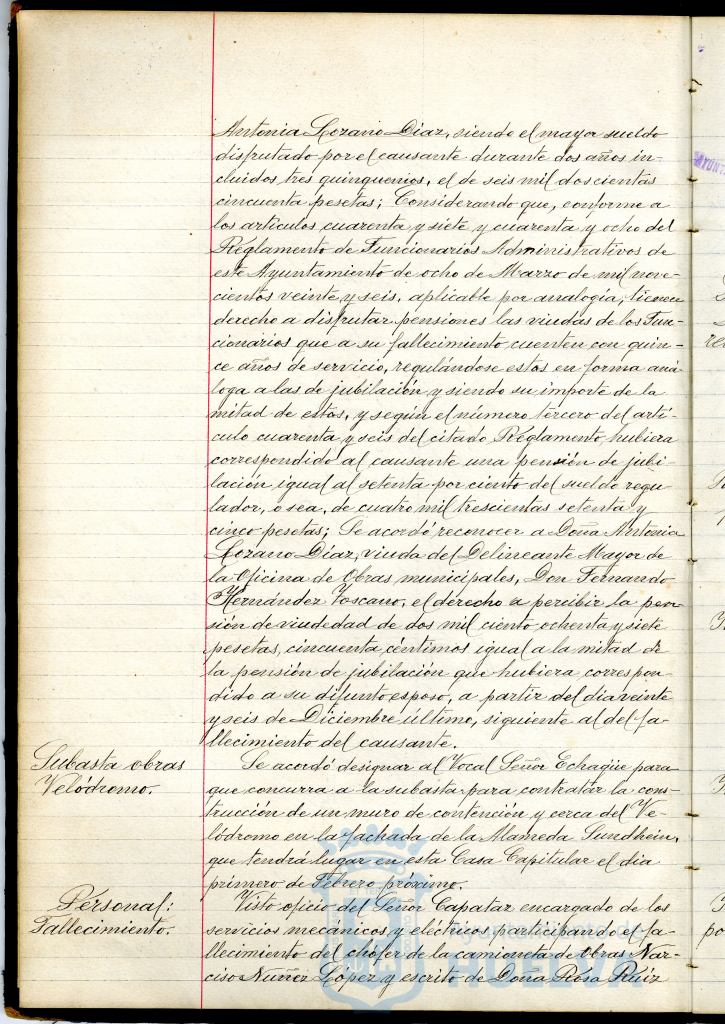 Antonia Lozano Diaz, siendo el mayor sueldo
disfrutado por el causante durante dos años in-
cluidos tres quinquenios, el de seis mil doscientas
cincuenta pesetas; Considerando que, conforme a
los artículos cuarenta y siete y cuarenta y ocho del
Reglamento de Funcionarios Administrativos de
este Ayuntamiento de ocho de Marzo de mil nove-
cientos veinte y seis, aplicable por analogía, tienen
derecho a disfrutar pensiones las viudas de los Fun-
cionarios que a su fallecimiento cuenten con quin-
ce años de servicio, regulándose estos en forma aná-
loga a las de jubilación y siendo su importe de la
mitad de estas, y según el número tercero del artí-
culo cuarenta y seis del citado Reglamento hubiera
correspondido al causante una pensión de jubi-
lación igual al setenta por ciento del sueldo regu-
lador, o sea, de cuatro mil trescientas setenta y
cinco pesetas; Se acordó reconocer a Doña Antonia
Lozano Diaz, viuda del Delineante Mayor de
la Oficina de Obras municipales, Don Fernando
Hernández Toscano, el derecho a percibir la pen-
sión de viudedad de dos mil ciento ochenta y siete
pesetas, cincuenta céntimos igual a la mitad de
la pensión de jubilación que hubiera correspon-
dido a su difunto esposo, a partir del dia veinte
y seis de Diciembre último, siguiente al del fa-
llecimiento del causante.
Subasta obras
Velódromo.
Se acordó designar al Vocal Señor Echagüe para
que concurra a la subasta para contratar la cons-
trucción de un muro de contención y cerca del Ve-
lódromo en la fachada de la Alameda Sundhein,
que tendrá lugar en esta Casa Capitular el dia
primero de Febrero próximo.
Personal:
Fallecimiento.
Visto oficio del Señor Capataz encargado de los
servicios mecánicos y eléctricos participando el fa-
llecimiento del chófer de la camioneta de obras Nar-
ciso Nuñez López y escrito de Doña Rosa Ruiz